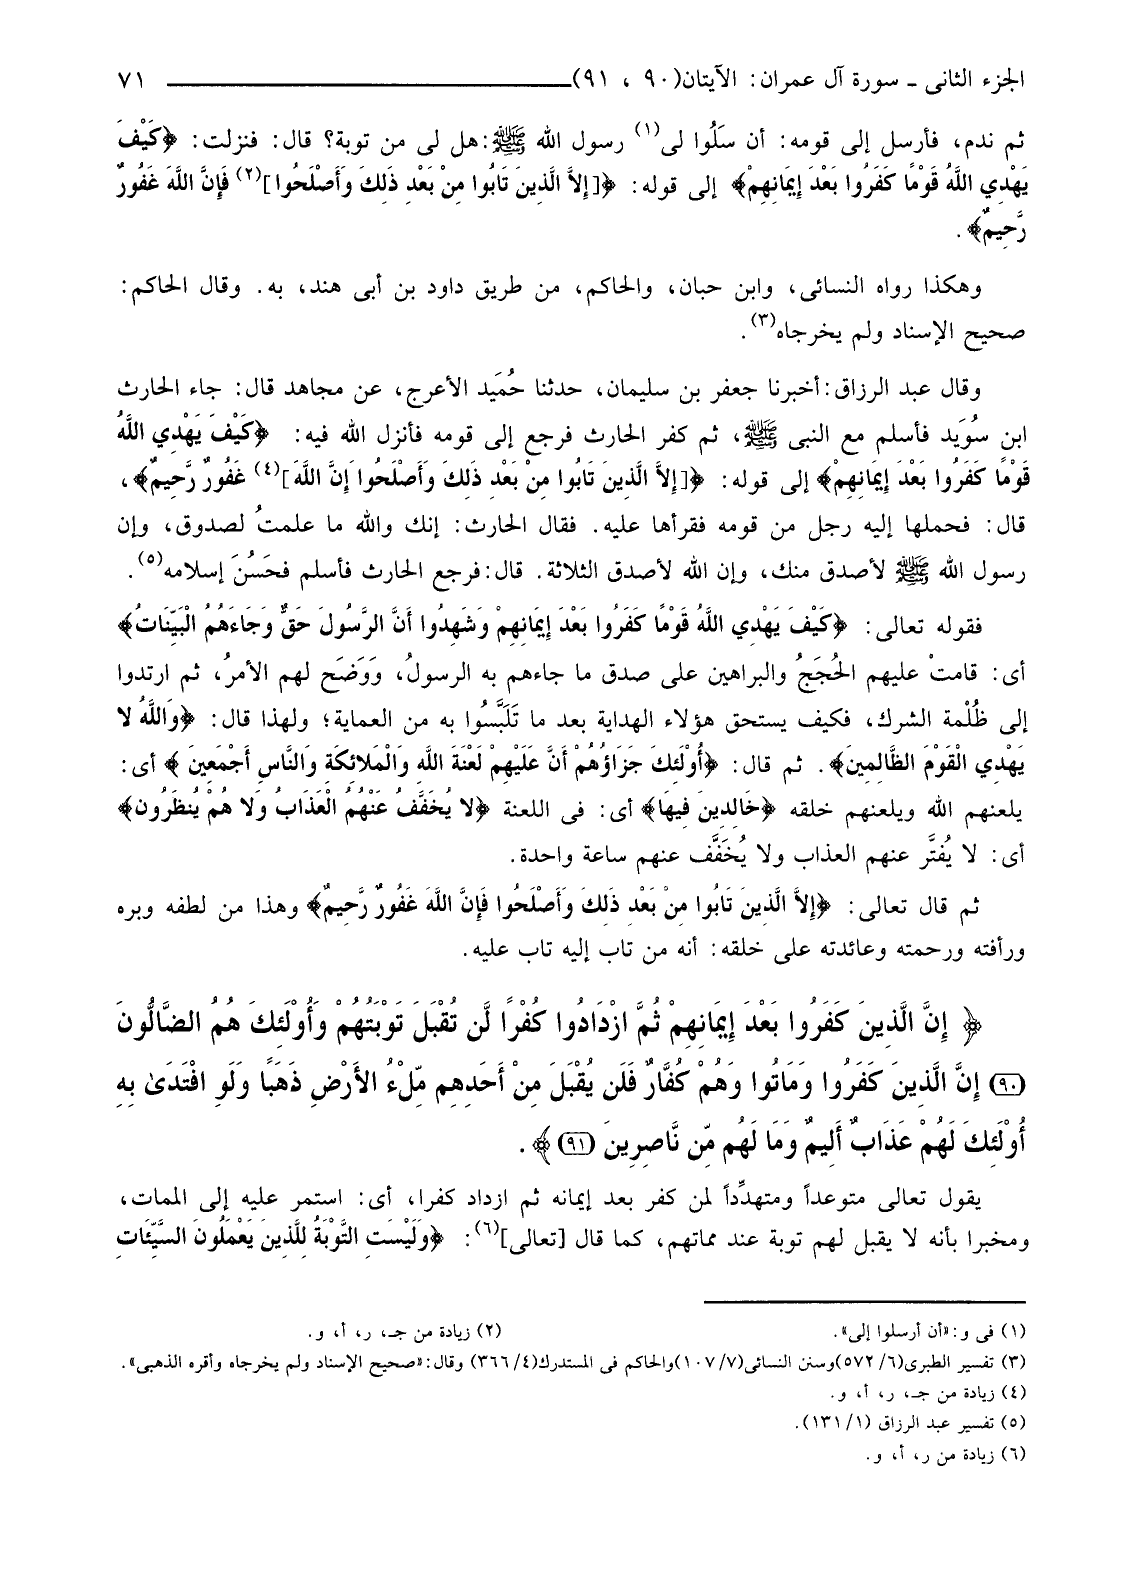 الجزء الثانى ـ سورة آل عمران: الآيتان(٩٠ ، ٩١) ٧١
ثم ندم، فأرسل إلى قومه: أن سَلُوا لى(١) رسول الله ﷺ:هل لى من توبة؟ قال: فنزلت: ﴿كَيْفَ
يَهْدِي اللَّهُ قَوْمًا كَفَرُوا بَعْدَ إِيمَانِهِمْ﴾ إلى قوله: ﴿[إِلاَّ الَّذِينَ تَابُوا مِنْ بَعْدِ ذَلِكَ وَأَصْلَحُوا](٢) فَإِنَّ اللَّهَ غَفُورٌ
رَّحِيمٌ﴾.
وهكذا رواه النسائى، وابن حبان، والحاكم، من طريق داود بن أبى هند، به. وقال الحاكم:
صحيح الإسناد ولم يخرجاه(٣).
وقال عبد الرزاق:أخبرنا جعفر بن سليمان، حدثنا حُمَيد الأعرج، عن مجاهد قال: جاء الحارث
ابن سُوَيد فأسلم مع النبى ﷺ، ثم كفر الحارث فرجع إلى قومه فأنزل الله فيه: ﴿كَيْفَ يَهْدِي اللَّهُ
قَوْمًا كَفَرُوا بَعْدَ إِيمَانِهِمْ﴾ إلى قوله: ﴿[إِلاَّ الَّذِينَ تَابُوا مِنْ بَعْدِ ذَلِكَ وَأَصْلَحُوا إِنَّ اللَّهَ](٤) غَفُورٌ رَّحِيمٌ﴾،
قال: فحملها إليه رجل من قومه فقرأها عليه. فقال الحارث: إنك والله ما علمتُ لصدوق، وإن
رسول الله ﷺ لأصدق منك، وإن الله لأصدق الثلاثة. قال:فرجع الحارث فأسلم فحَسُنَ إسلامه(٥).
فقوله تعالى: ﴿كَيْفَ يَهْدِي اللَّهُ قَوْمًا كَفَرُوا بَعْدَ إِيمَانِهِمْ وَشَهِدُوا أَنَّ الرَّسُولَ حَقٌّ وَجَاءَهُمُ الْبَيِّنَاتُ﴾
أى: قامتْ عليهم الحُجَجُ والبراهين على صدق ما جاءهم به الرسولُ، ووَضَح لهم الأمرُ، ثم ارتدوا
إلى ظُلْمة الشرك، فكيف يستحق هؤلاء الهداية بعد ما تَلَبَّسُوا به من العماية؛ ولهذا قال: ﴿وَاللَّهُ لا
يَهْدِي الْقَوْمَ الظَّالِمِينَ﴾. ثم قال: ﴿أُوْلَئِكَ جَزَاؤُهُمْ أَنَّ عَلَيْهِمْ لَعْنَةَ اللَّهِ وَالْمَلائِكَةِ وَالنَّاسِ أَجْمَعِينَ ﴾ أى:
يلعنهم الله ويلعنهم خلقه ﴿خَالِدِينَ فِيهَا﴾ أى: فى اللعنة ﴿لا يُخَفَّفُ عَنْهُمُ الْعَذَابُ وَلا هُمْ يُنظَرُون﴾
أى: لا يُفتَّر عنهم العذاب ولا يُخَفَّف عنهم ساعة واحدة.
ثم قال تعالى: ﴿إِلاَّ الَّذِينَ تَابُوا مِنْ بَعْدِ ذَلِكَ وَأَصْلَحُوا فَإِنَّ اللَّهَ غَفُورٌ رَّحِيمٌ﴾ وهذا من لطفه وبره
ورأفته ورحمته وعائدته على خلقه: أنه من تاب إليه تاب عليه.
﴿ إِنَّ الَّذِينَ كَفَرُوا بَعْدَ إِيمَانِهِمْ ثُمَّ ازْدَادُوا كُفْرًا لَّن تُقْبَلَ تَوْبَتُهُمْ وَأُوْلَئِكَ هُمُ الضَّالُّونَ
(٩٠) إِنَّ الَّذِينَ كَفَرُوا وَمَاتُوا وَهُمْ كُفَّارٌ فَلَن يُقْبَلَ مِنْ أَحَدِهِم مِّلْءُ الأَرْضِ ذَهَبًا وَلَوِ افْتَدَىٰ بِهِ
أُوْلَئِكَ لَهُمْ عَذَابٌ أَلِيمٌ وَمَا لَهُم مِّن نَّاصِرِينَ (٩١) ﴾.
يقول تعالى متوعداً ومتهدِّداً لمن كفر بعد إيمانه ثم ازداد كفرا، أى: استمر عليه إلى الممات،
ومخبرا بأنه لا يقبل لهم توبة عند مماتهم، كما قال [تعالى](٦): ﴿وَلَيْسَتِ التَّوْبَةُ لِلَّذِينَ يَعْمَلُونَ السَّيِّئَاتِ
(١) فى و:«أن أرسلوا إلى». (٢) زيادة من جـ، ر، أ، و.
(٣) تفسير الطبرى(٥٧٢/٦)وسنن النسائى(١٠٧/٧)والحاكم فى المستدرك(٣٦٦/٤) وقال:«صحيح الإسناد ولم يخرجاه وأقره الذهبى».
(٤) زيادة من جـ، ر، أ، و.
(٥) تفسير عبد الرزاق (١٣١/١).
(٦) زيادة من ر، أ، و.